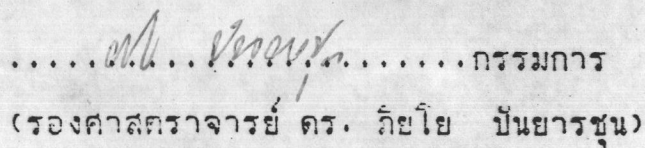 ....................กรรมการ
(รองศาสตราจารย์ ดร. ภิยโย ปันยารชุน)